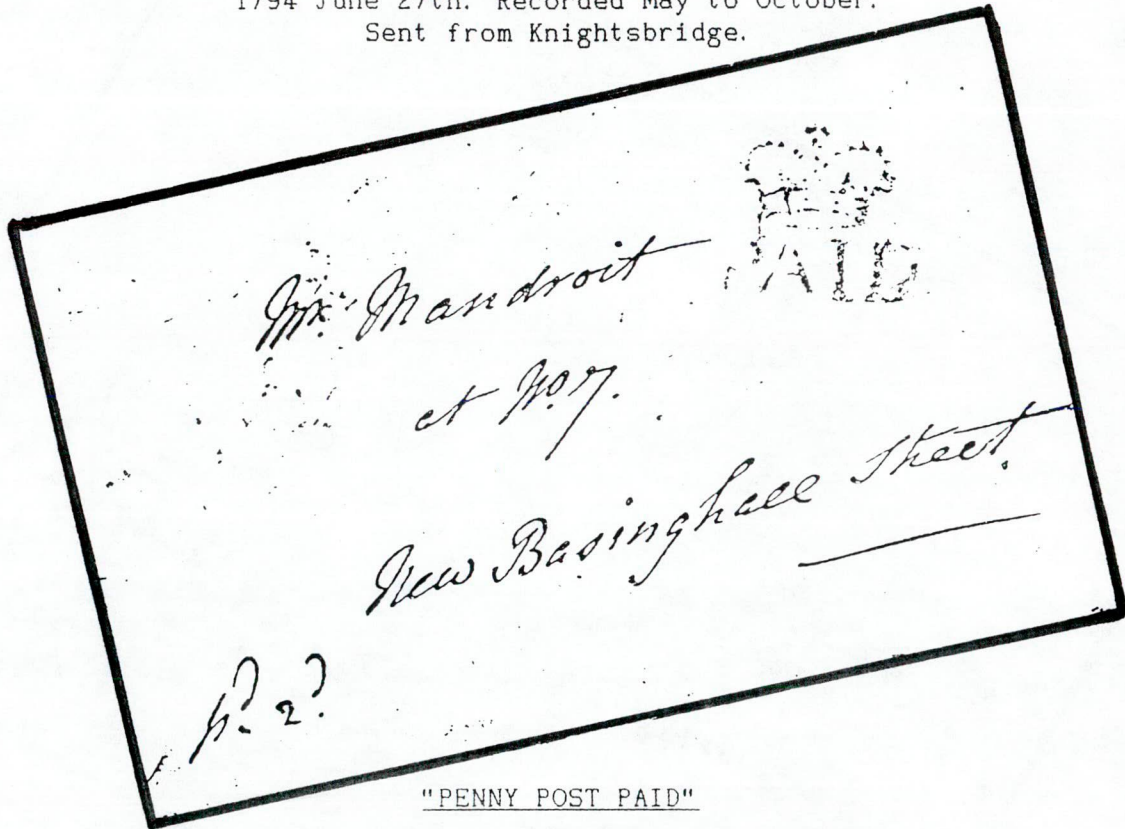 1794 June 27th. Recorded May to October.
Sent from Knightsbridge.
PAID
Mr. Mandroit
at No 7.
New Basinghall Street.
pd 2d
"PENNY POST PAID"